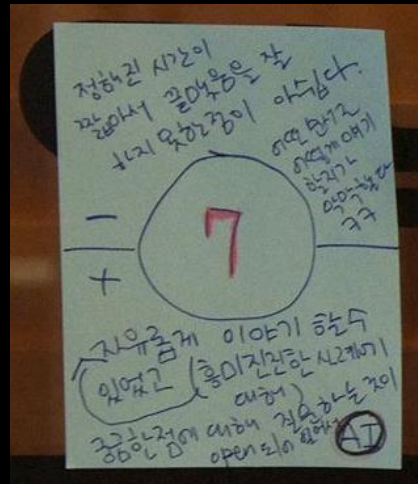 정해진 시간이
짧아서 끝맺음을 잘
하지 못한점이 아쉽다.
어떤
어떻게 얘기
할지가
막막했다
ㅋㅋ
－
7
＋
자유롭게 이야기 할수
있었고 (흥미진진한 시계에
대해)
궁금한점에 대해 질문하는 것이
open 되어 있어서
AI